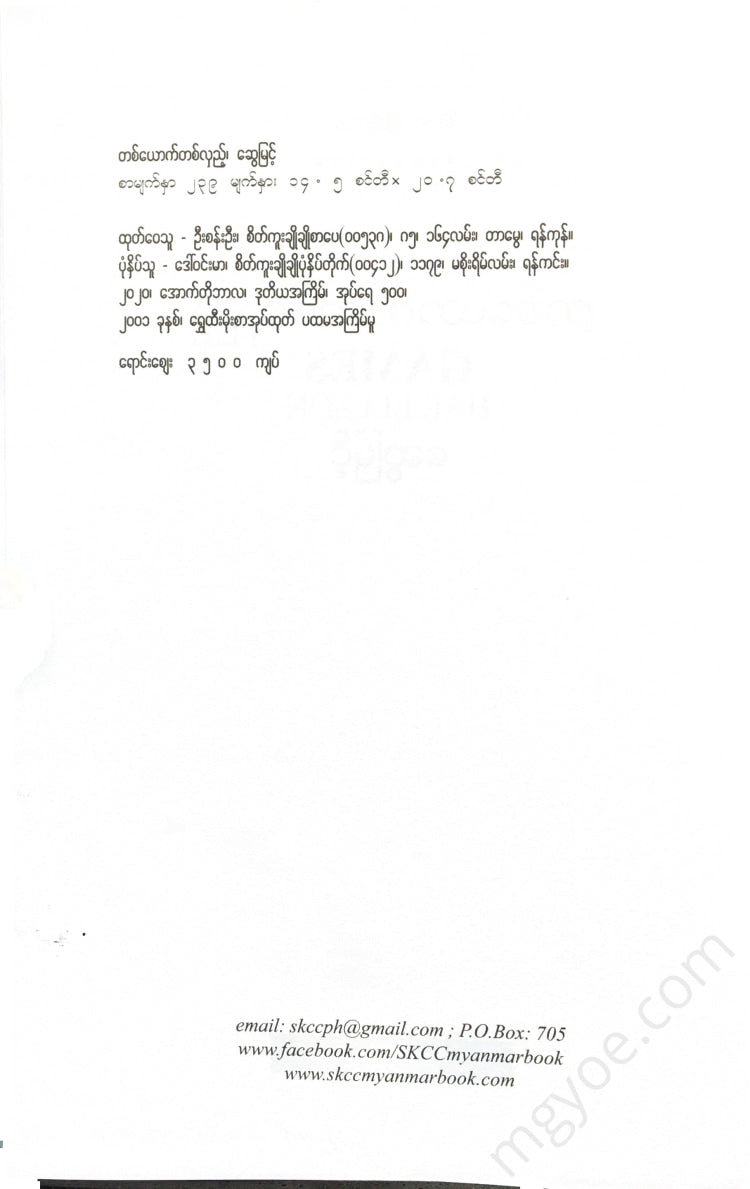 တစ်ယောက်တစ်လှည့်၊ ဆွေမြင့်
စာမျက်နှာ ၂၃၉ မျက်နှာ၊ ၁၄ . ၅ စင်တီ × ၂၀ .၇ စင်တီ
ထုတ်ဝေသူ - ဦးစန်းဦး၊ စိတ်ကူးချိုချိုစာပေ(၀၀၅၃၈)၊ ဂ၅၊ ၁၆၄လမ်း၊ တာမွေ၊ ရန်ကုန်။
ပုံနှိပ်သူ - ဒေါ်ဝင်းမာ၊ စိတ်ကူးချိုချိုပုံနှိပ်တိုက်(၀၀၄၁၂)၊ ၁၁၇၉၊ မစိုးရိမ်လမ်း၊ ရန်ကင်း။
၂၀၂၀၊ အောက်တိုဘာလ၊ ဒုတိယအကြိမ်၊ အုပ်ရေ ၅၀၀၊
၂၀၀၁ ခုနှစ်၊ ရွှေထီးမိုးစာအုပ်ထုတ် ပထမအကြိမ်မူ
ရောင်းဈေး ၃ ၅ ၀ ၀ ကျပ်
email: skccph@gmail.com ; P.O.Box: 705
www.facebook.com/SKCCmyanmarbook
www.skccmyanmarbook.com
mgyoe.com